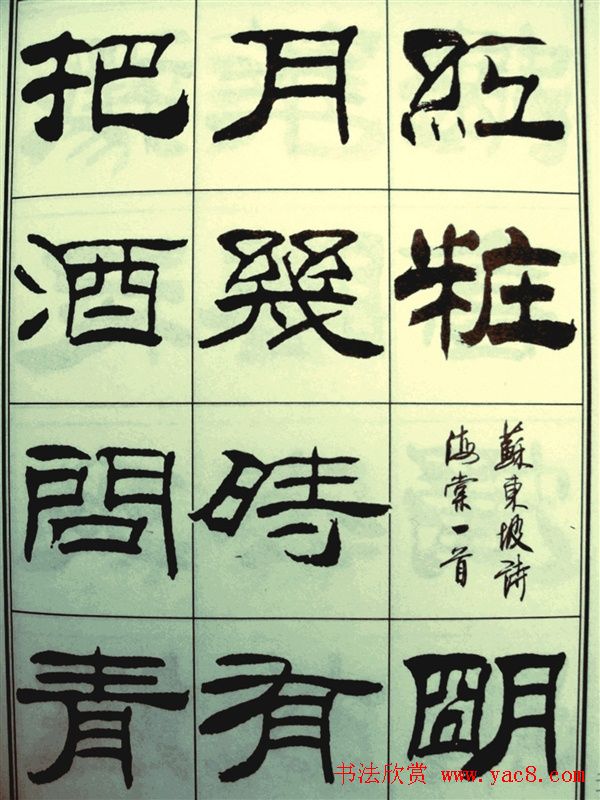 紅粧
蘇東坡詩
海棠一首
朙
月幾時有
把酒問青
书法欣赏 www.yac8.com